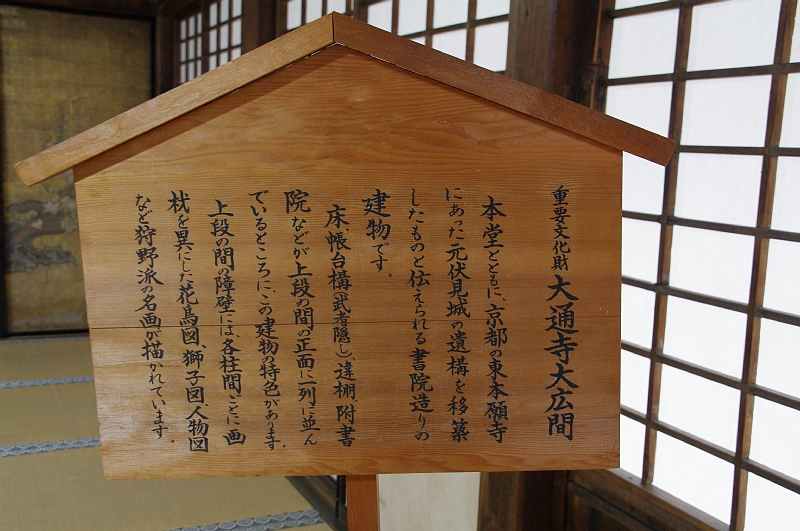 重要文化財 大通寺大広間
本堂とともに、京都の東本願寺
にあった元伏見城の遺構を移築
したものと伝えられる書院造りの
建物です。
床帳台構（武者隠し）、違棚、附書
院などが上段の間の正面に一列に並ん
でいるところに、この建物の特色があります。
上段の間の障壁には、各柱間ごとに画
材を異にした花鳥図、獅子図、人物図
など狩野派の名画が描かれています。